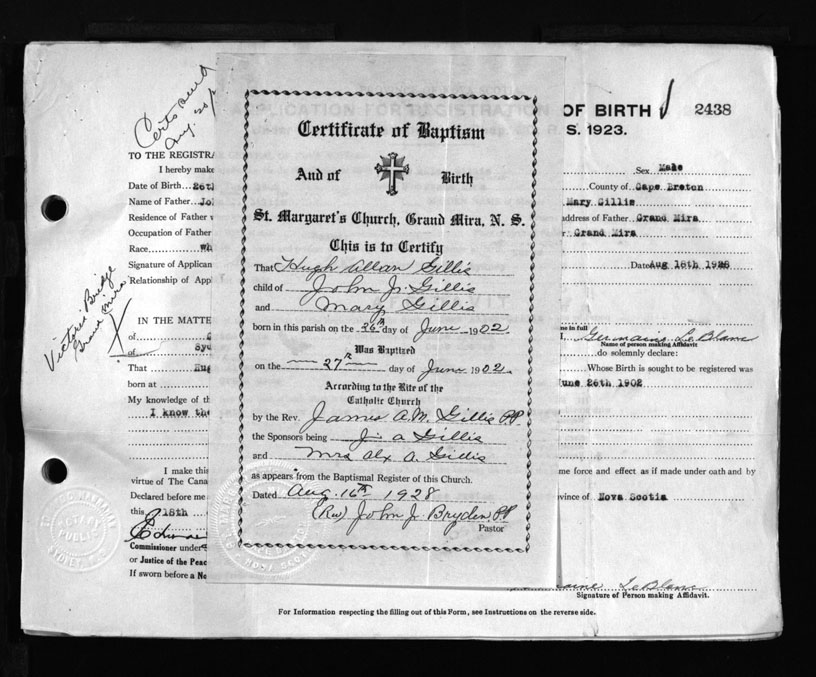 Certs send
Aug. 20/
APPLICATION FOR REGISTRATION OF BIRTH 2438
S. 1923.
TO THE REGISTRA
I hereby make
Sex Male
Date of Birth 26th
County of Cape Breton
Name of Father Jo
Mary Gillis
Residence of Father
address of Father Grand Mira
Occupation of Father
Grand Mira
Race Wh
Signature of Applican
Date Aug 18th 1928
Relationship of App
Victoria Bridge
Grand Mira
X
IN THE MATTE
of
me in full
I, Germaine LeBlanc
Name of person making Affidavit
of Syd
do solemnly declare:
That Hug
Whose Birth is sought to be registered was
born at
June 26th 1902
My knowledge of th
I know the
I make this
me force and effect as if made under oath and by
virtue of The Cana
Declared before me
vince of Nova Scotia
this 18th
Commissioner under
or Justice of the Peac
If sworn before a No
aine LeBlanc
Signature of Person making Affidavit.
For Information respecting the filling out of this Form, see Instructions on the reverse side.
Certificate of Baptism
And of Birth
St. Margaret's Church, Grand Mira, N. S.
This is to Certify
That Hugh Allan Gillis
child of John J. Gillis
and Mary Gillis
born in this parish on the 26th day of June 1902
Was Baptized
on the 27th day of June 1902
According to the Rite of the
Catholic Church
by the Rev. James A. M. Gillis P.P.
the Sponsors being J. A Gillis
and Mrs Alx A. Gillis
as appears from the Baptismal Register of this Church.
Dated Aug. 16th 1928
(Rev) John J. Bryden, P.P.
Pastor
NOTARY PUBLIC
SYDNEY, N.S.